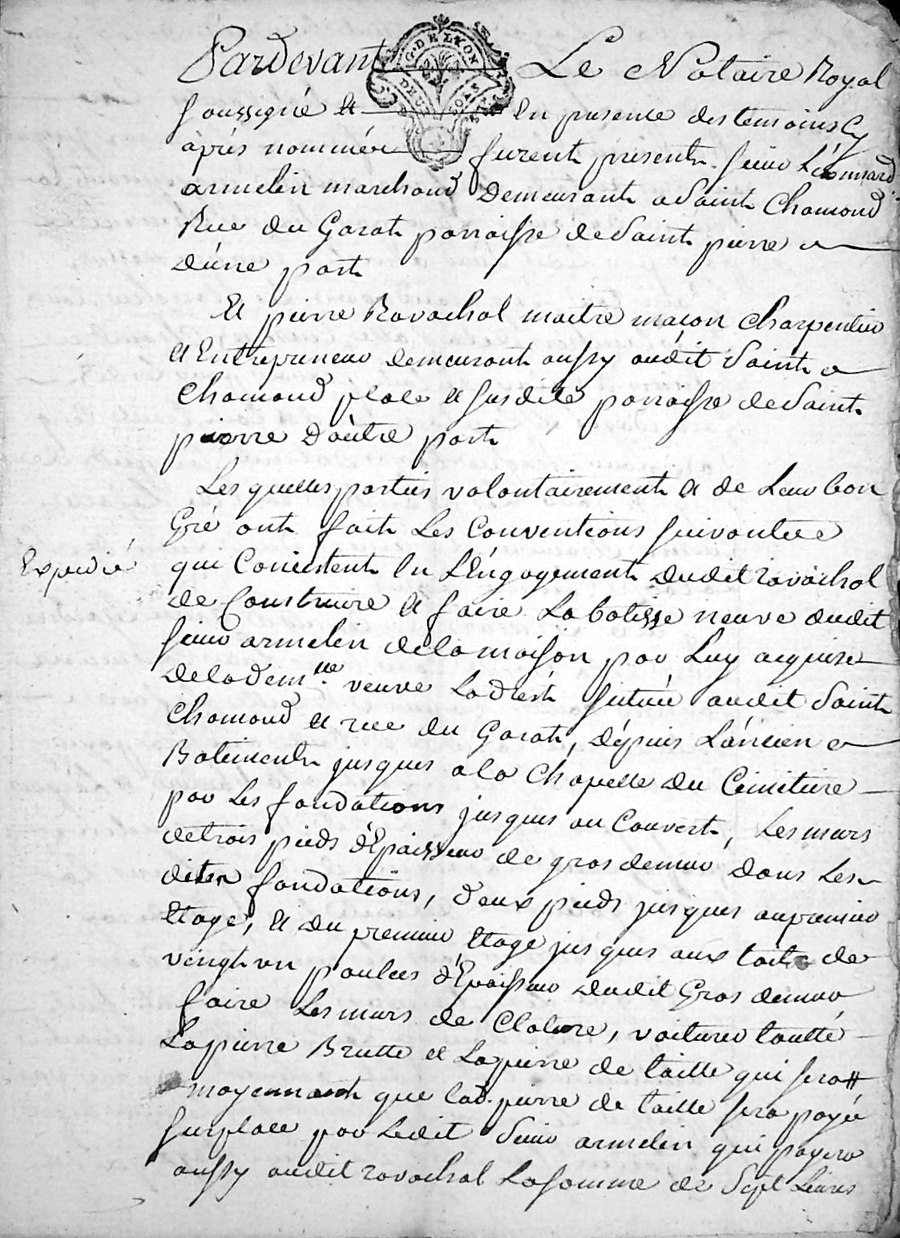 Pardevant Le Notaire Royal
G. DE LYON
DEUX SOLS
soussigné et En presence des temoins Cy
après nommés furent présents sieur Léonnard
armelin marchand Demeurant a Saint Chamond
Rue du Garat parroisse de Saint pierre
d'une part
Et pierre Ravachol maitre maçon charpentier
et Entrepreneur demeurant aussy audit Saint
Chamond place et susdite parroisse de Saint
pierre d'autre part
Les quelles parties volontairement et de Leur bon
Gré ont fait Les Conventions suivantes
Expedié
qui Consistent En L'Engagement dudit ravachol
de Construire et faire La batisse neuve dudit
sieur armelin de la maison par Luy acquise
de la dem.lle veuve située audit Saint
Chamond et rue du Garat, dépuis L'ancien
Batiment jusques a la Chapelle du Cimetiere
par Les fondations jusques au Couvert, Les murs
de trois pieds d'Epaisseur de gros de mur dans Les
dites fondations, deux pieds jusques au premier
Etage, et du premier Etage jusques aux toits de
vingt un pouces d'Epaisseur dudit Gros de mur
faire Les murs de Cloture, voiturer toutte
La pierre Brutte et La pierre de taille qui sera
moyennant que lad. pierre de taille sera payé
sur place par Ledit Sieur armelin qui payera
aussy audit ravachol La somme de Sept Livres